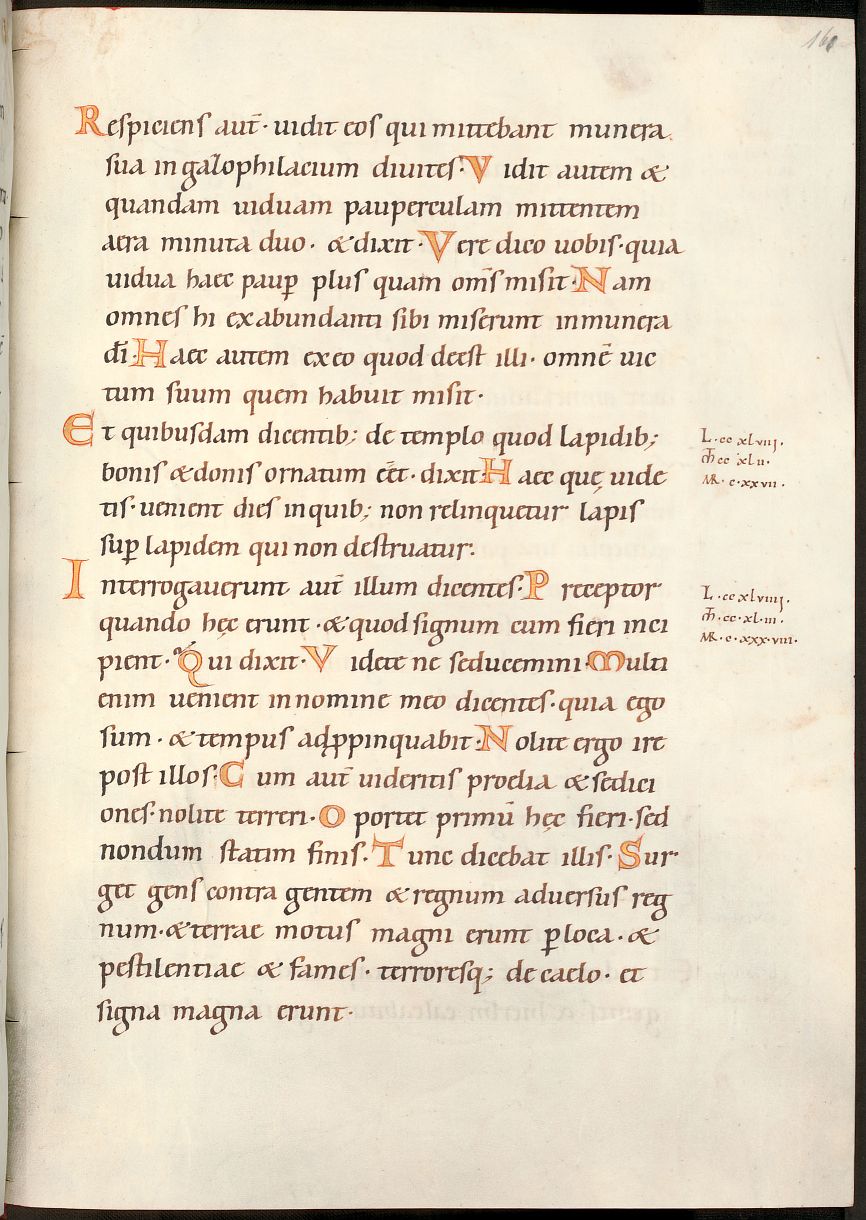 161
Respiciens aut̄· uidit eos qui mittebant munera
sua in gazophilacium diuites· Vidit autem &
quandam uiduam pauperculam mittentem
aera minuta duo· & dixit· Vere dico uobis· quia
uidua haec paup̱ plus quam om̄s misit· Nam
omnes hi ex abundanti sibi miserunt in munera
dī· Haec autem ex eo quod deest illi· omnē uic
tum suum quem habuit misit·
Et quibusdam dicentib; de templo quod lapidib;
bonis & donis ornatum eēt· dixit· Haec quę uide
tis· uenient dies in quib; non relinquetur lapis
sup̱ lapidem qui non destruatur·
Interrogauerunt aut̄ illum dicentes· Preceptor
quando hęc erunt· & quod signum cum fieri inci
pient· Qui dixit· Videte ne seducemini· Multi
enim uenient in nomine meo dicentes· quia ego
sum· & tempus adp̱pinquabit· Nolite ergo ire
post illos· Cum aut̄ uideritis proelia & sedici
ones· nolite terreri· Oportet primū hęc fieri· sed
nondum statim finis· Tunc dicebat illis· Sur
get gens contra gentem & regnum aduersus reg
num· & terrae motus magni erunt p̱ loca· &
pestilentiae & fames· terroresq; de caelo· et
signa magna erunt·
L·cc xlviij·
m̄ cc xlii·
MR·c·xxvii·
L·cc xlviiij·
m̄·cc·xl·iii·
MR·c·xxx·viii·